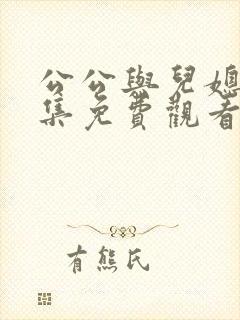 公公與兒媳
集免費觀看
有熊氏